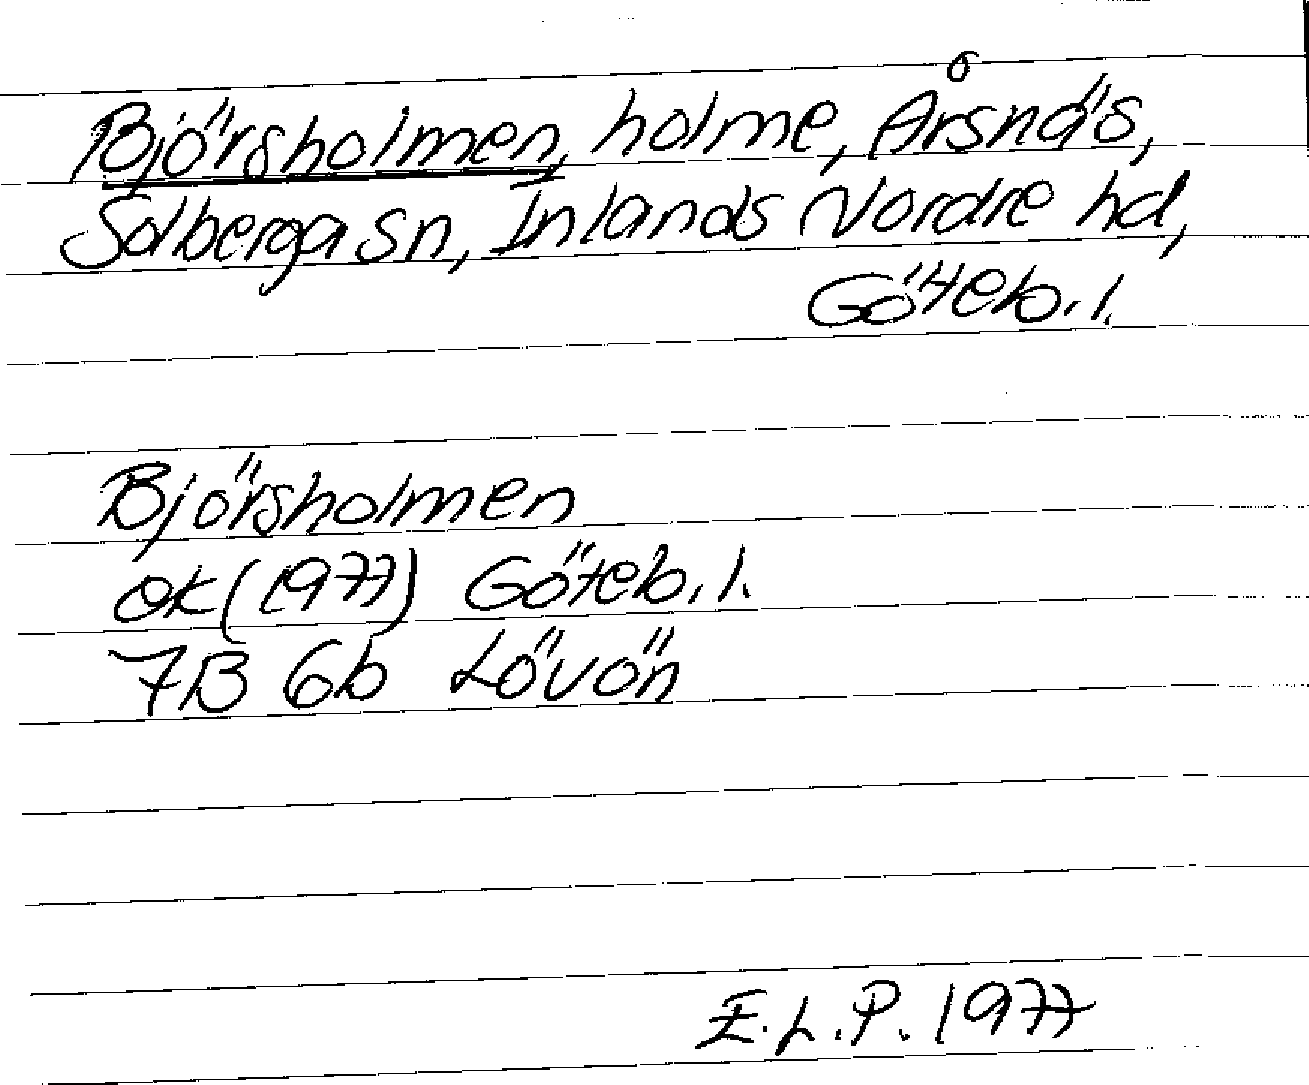 Björsholmen, holme, Årsnäs,
Solberga sn, Inlands Nordre hd,
Göteb. l.
Björsholmen
ek (1977) Göteb. l.
7B 6b Lövön
E.L.P. 1977